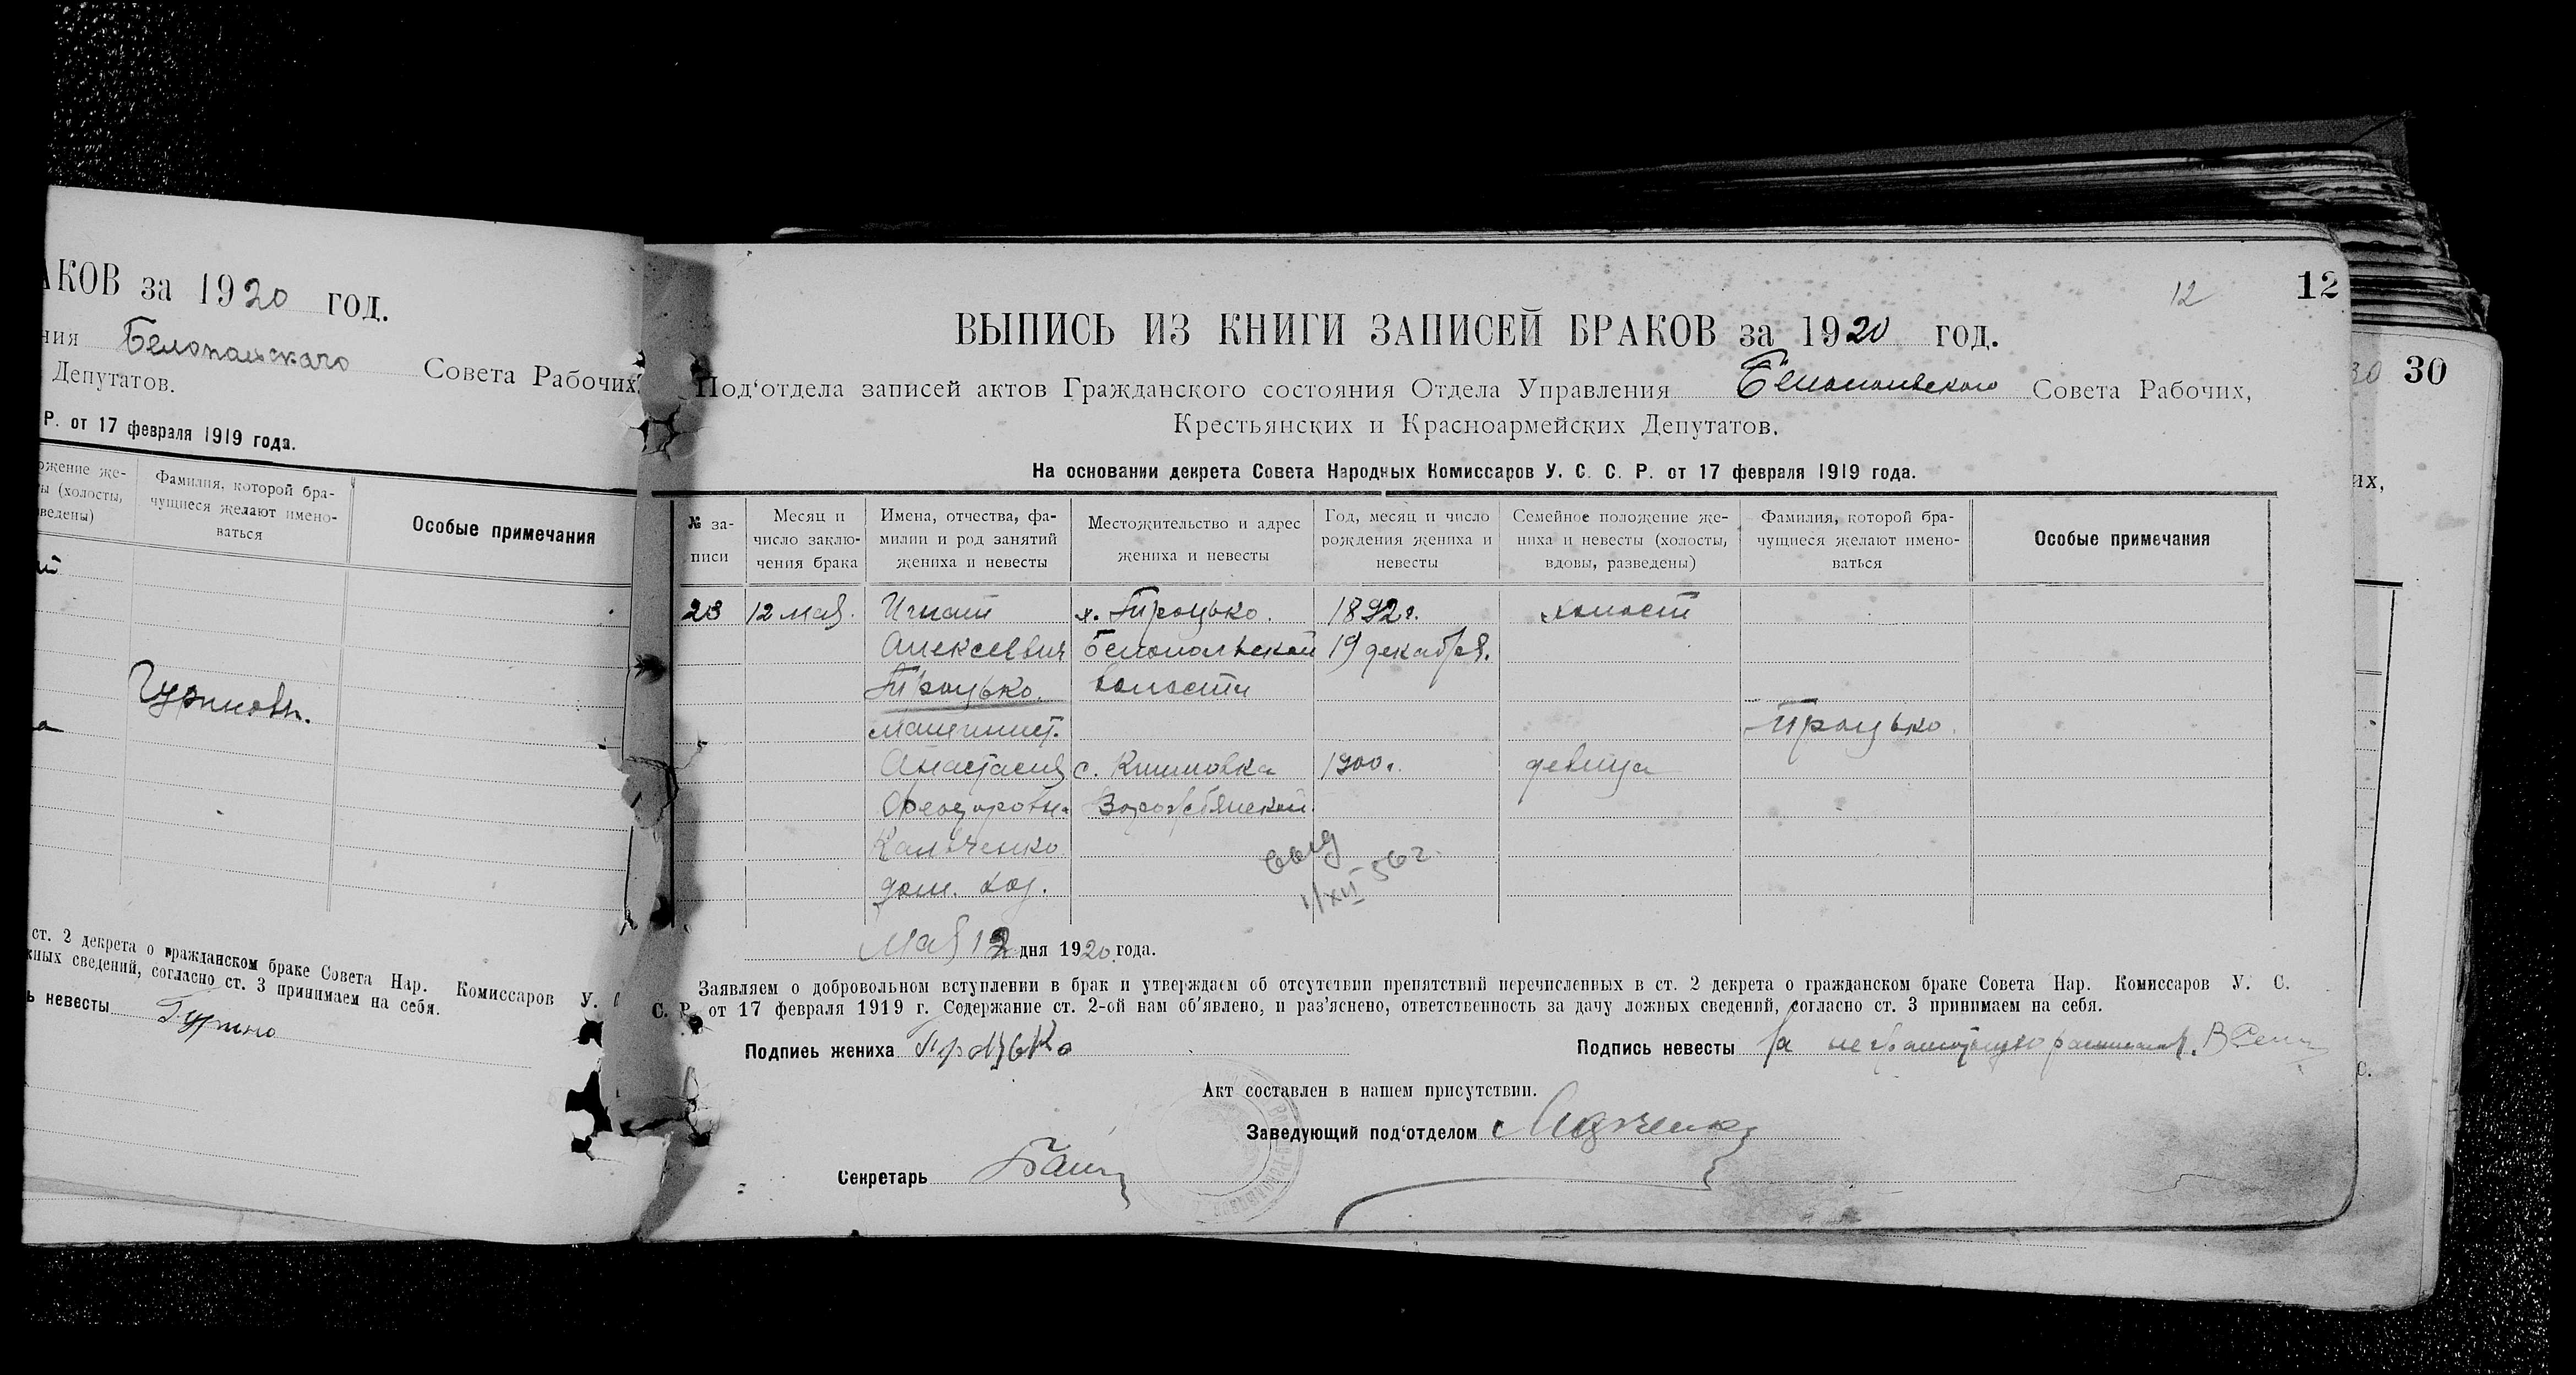 АКОВ за 1920 год.
ния Белопольскаго Совета Рабочих,
Депутатов.
Р. от 17 февраля 1919 года.
ожение же-
ы (холосты,
зведены)
Фамилия, которой бра-
чущиеся желают имено-
ваться
Особые примечания
Гуриновы.
ст. 2 декрета о гражданском браке Совета Нар. Комиссаров У.
жных сведений, согласно ст. 3 принимаем на себя.
ь невесты Гурино
12
12
ВЫПИСЬ ИЗ КНИГИ ЗАПИСЕЙ БРАКОВ за 1920 год.
Под‘отдела записей актов Гражданского состояния Отдела Управления Белопольского Совета Рабочих,
Крестьянских и Красноармейских Депутатов.
На основании декрета Совета Народных Комиссаров У. С. С. Р. от 17 февраля 1919 года.
№ за-
писи
Месяц и
число заклю-
чения брака
Имена, отчества, фа-
милии и род занятий
жениха и невесты
Местожительство и адрес
жениха и невесты
Год, месяц и число
рождения жениха и
невесты
Семейное положение же-
ниха и невесты (холосты,
вдовы, разведены)
Фамилия, которой бра-
чущиеся желают имено-
ваться
Особые примечания
23 12 мая. Игнат х. Процько. 1892г. холост
Алексеевич Белопольской 19 декабря.
Процько. волости
машинист. Процько
Анастасия с. Климовка 1900г. девица
Феодоровна Ворожбянской
Кальченко
дом. хоз.
выд
1/XII 56г.
Мая 12 дня 1920 года.
Заявляем о добровольном вступлении в брак и утверждаем об отсутствии препятствий перечисленных в ст. 2 декрета о гражданском браке Совета Нар. Комиссаров У. С.
С. Р. от 17 февраля 1919 г. Содержание ст. 2-ой нам об'явлено, и раз'яснено, ответственность за дачу ложных сведений, согласно ст. 3 принимаем на себя.
Подпись жениха Процько
Подпись невесты За неграмотную расписался.
Акт составлен в нашем присутствии.
Заведующий под‘отделом
Секретарь
30
30
их,
с.